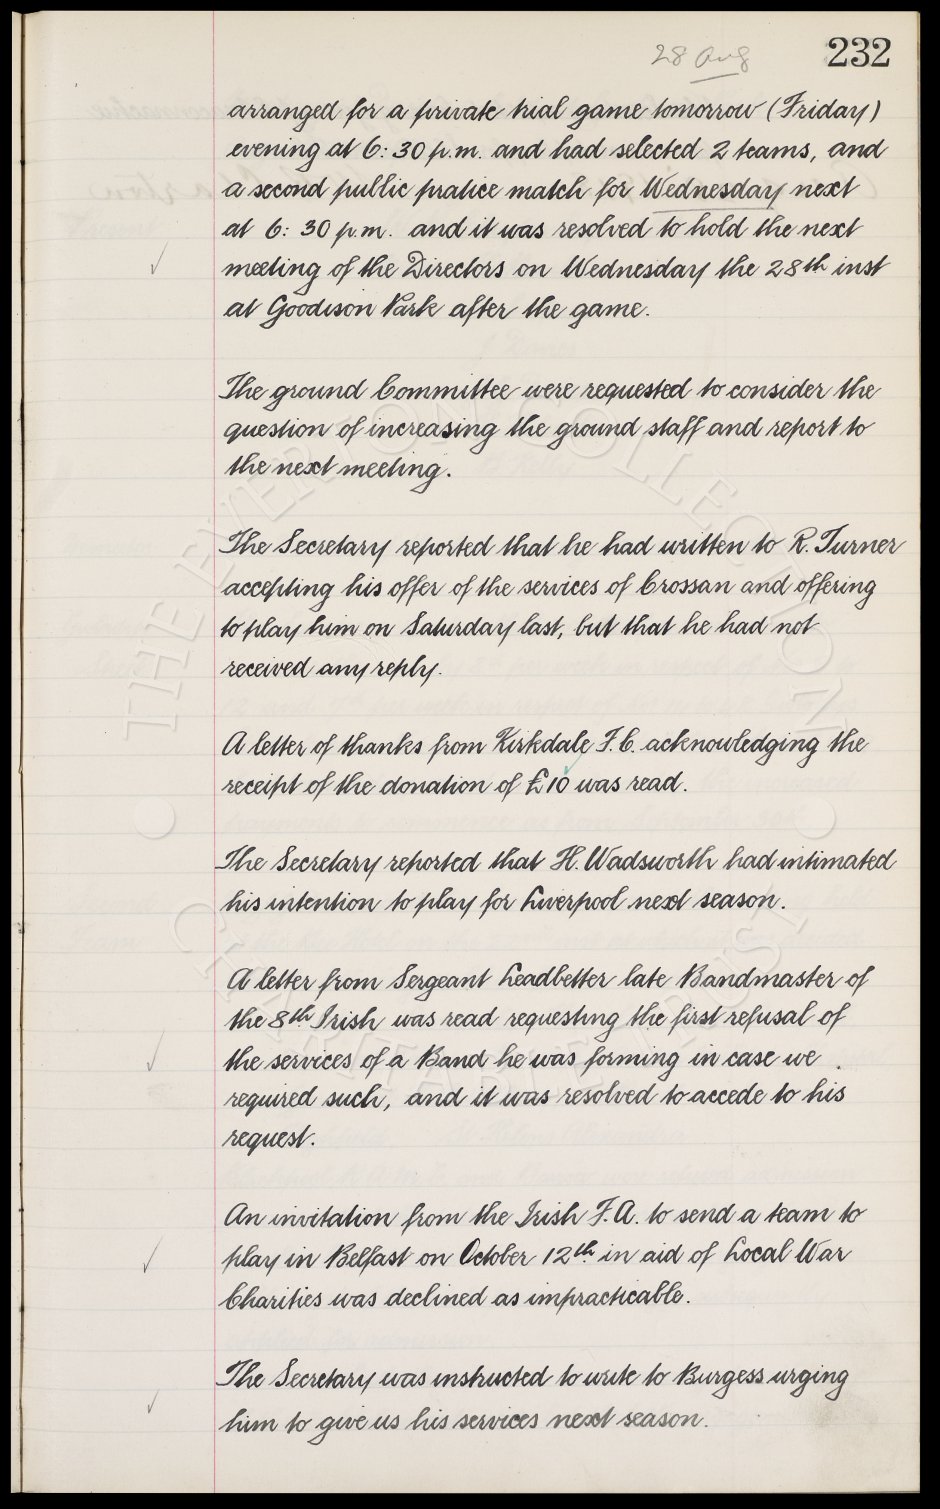 28 Aug
232
arranged for a private trial game tomorrow (Friday)
evening at 6:30 p.m. and had selected 2 teams, and
a second public pratice match for Wednesday next
at 6:30 p.m. and it was resolved to hold the next
meeting of the Directors on Wednesday the 28th inst
at Goodison Park after the game.
The ground Committee were requested to consider the
question of increasing the ground staff and report to
the next meeting.
The Secretary reported that he had written to R. Turner
accepting his offer of the services of Crossan and offering
to play him on Saturday last, but that he had not
received any reply.
A letter of thanks from Kirkdale F.C. acknowledging the
receipt of the donation of £10 was read.
The Secretary reported that H. Wadsworth had intimated
his intention to play for Liverpool next season.
A letter from Sergeant Leadbetter late Bandmaster of
the 8th Irish was read requesting the first refusal of
the services of a Band he was forming in case we
required such, and it was resolved to accede to his
request.
An invitation from the Irish F.A. to send a team to
play in Belfast on October 12th in aid of Local War
Charities was declined as impracticable.
The Secretary was instructed to write to Burgess urging
him to give us his services next season.
THE EVERTON COLLECTION
CHARITABLE TRUST